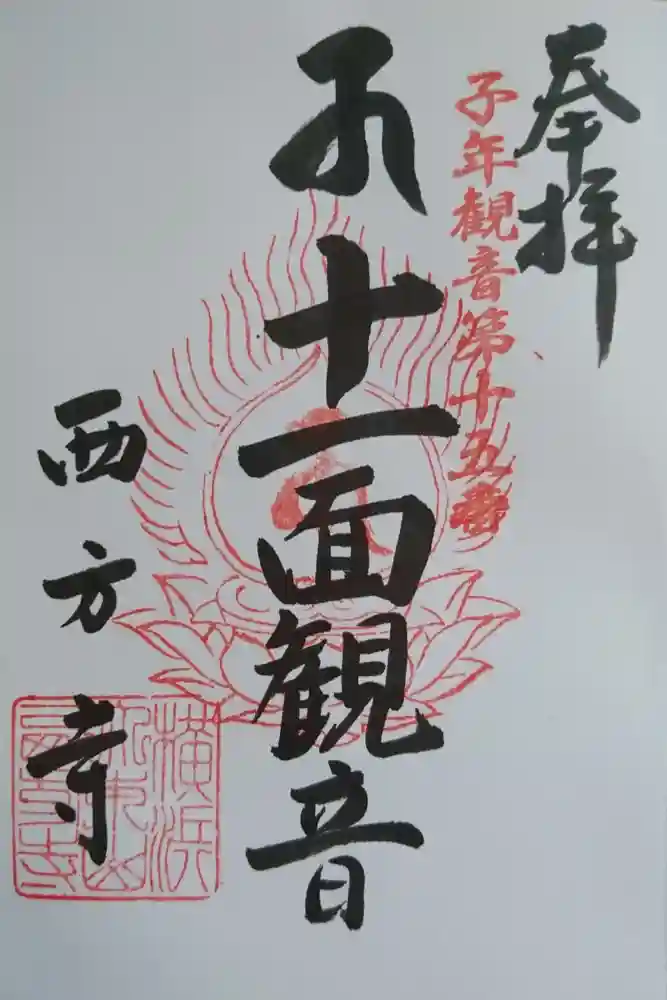 奉拝
子年観音第十五番
十一面観音
西方寺
横浜
西方寺